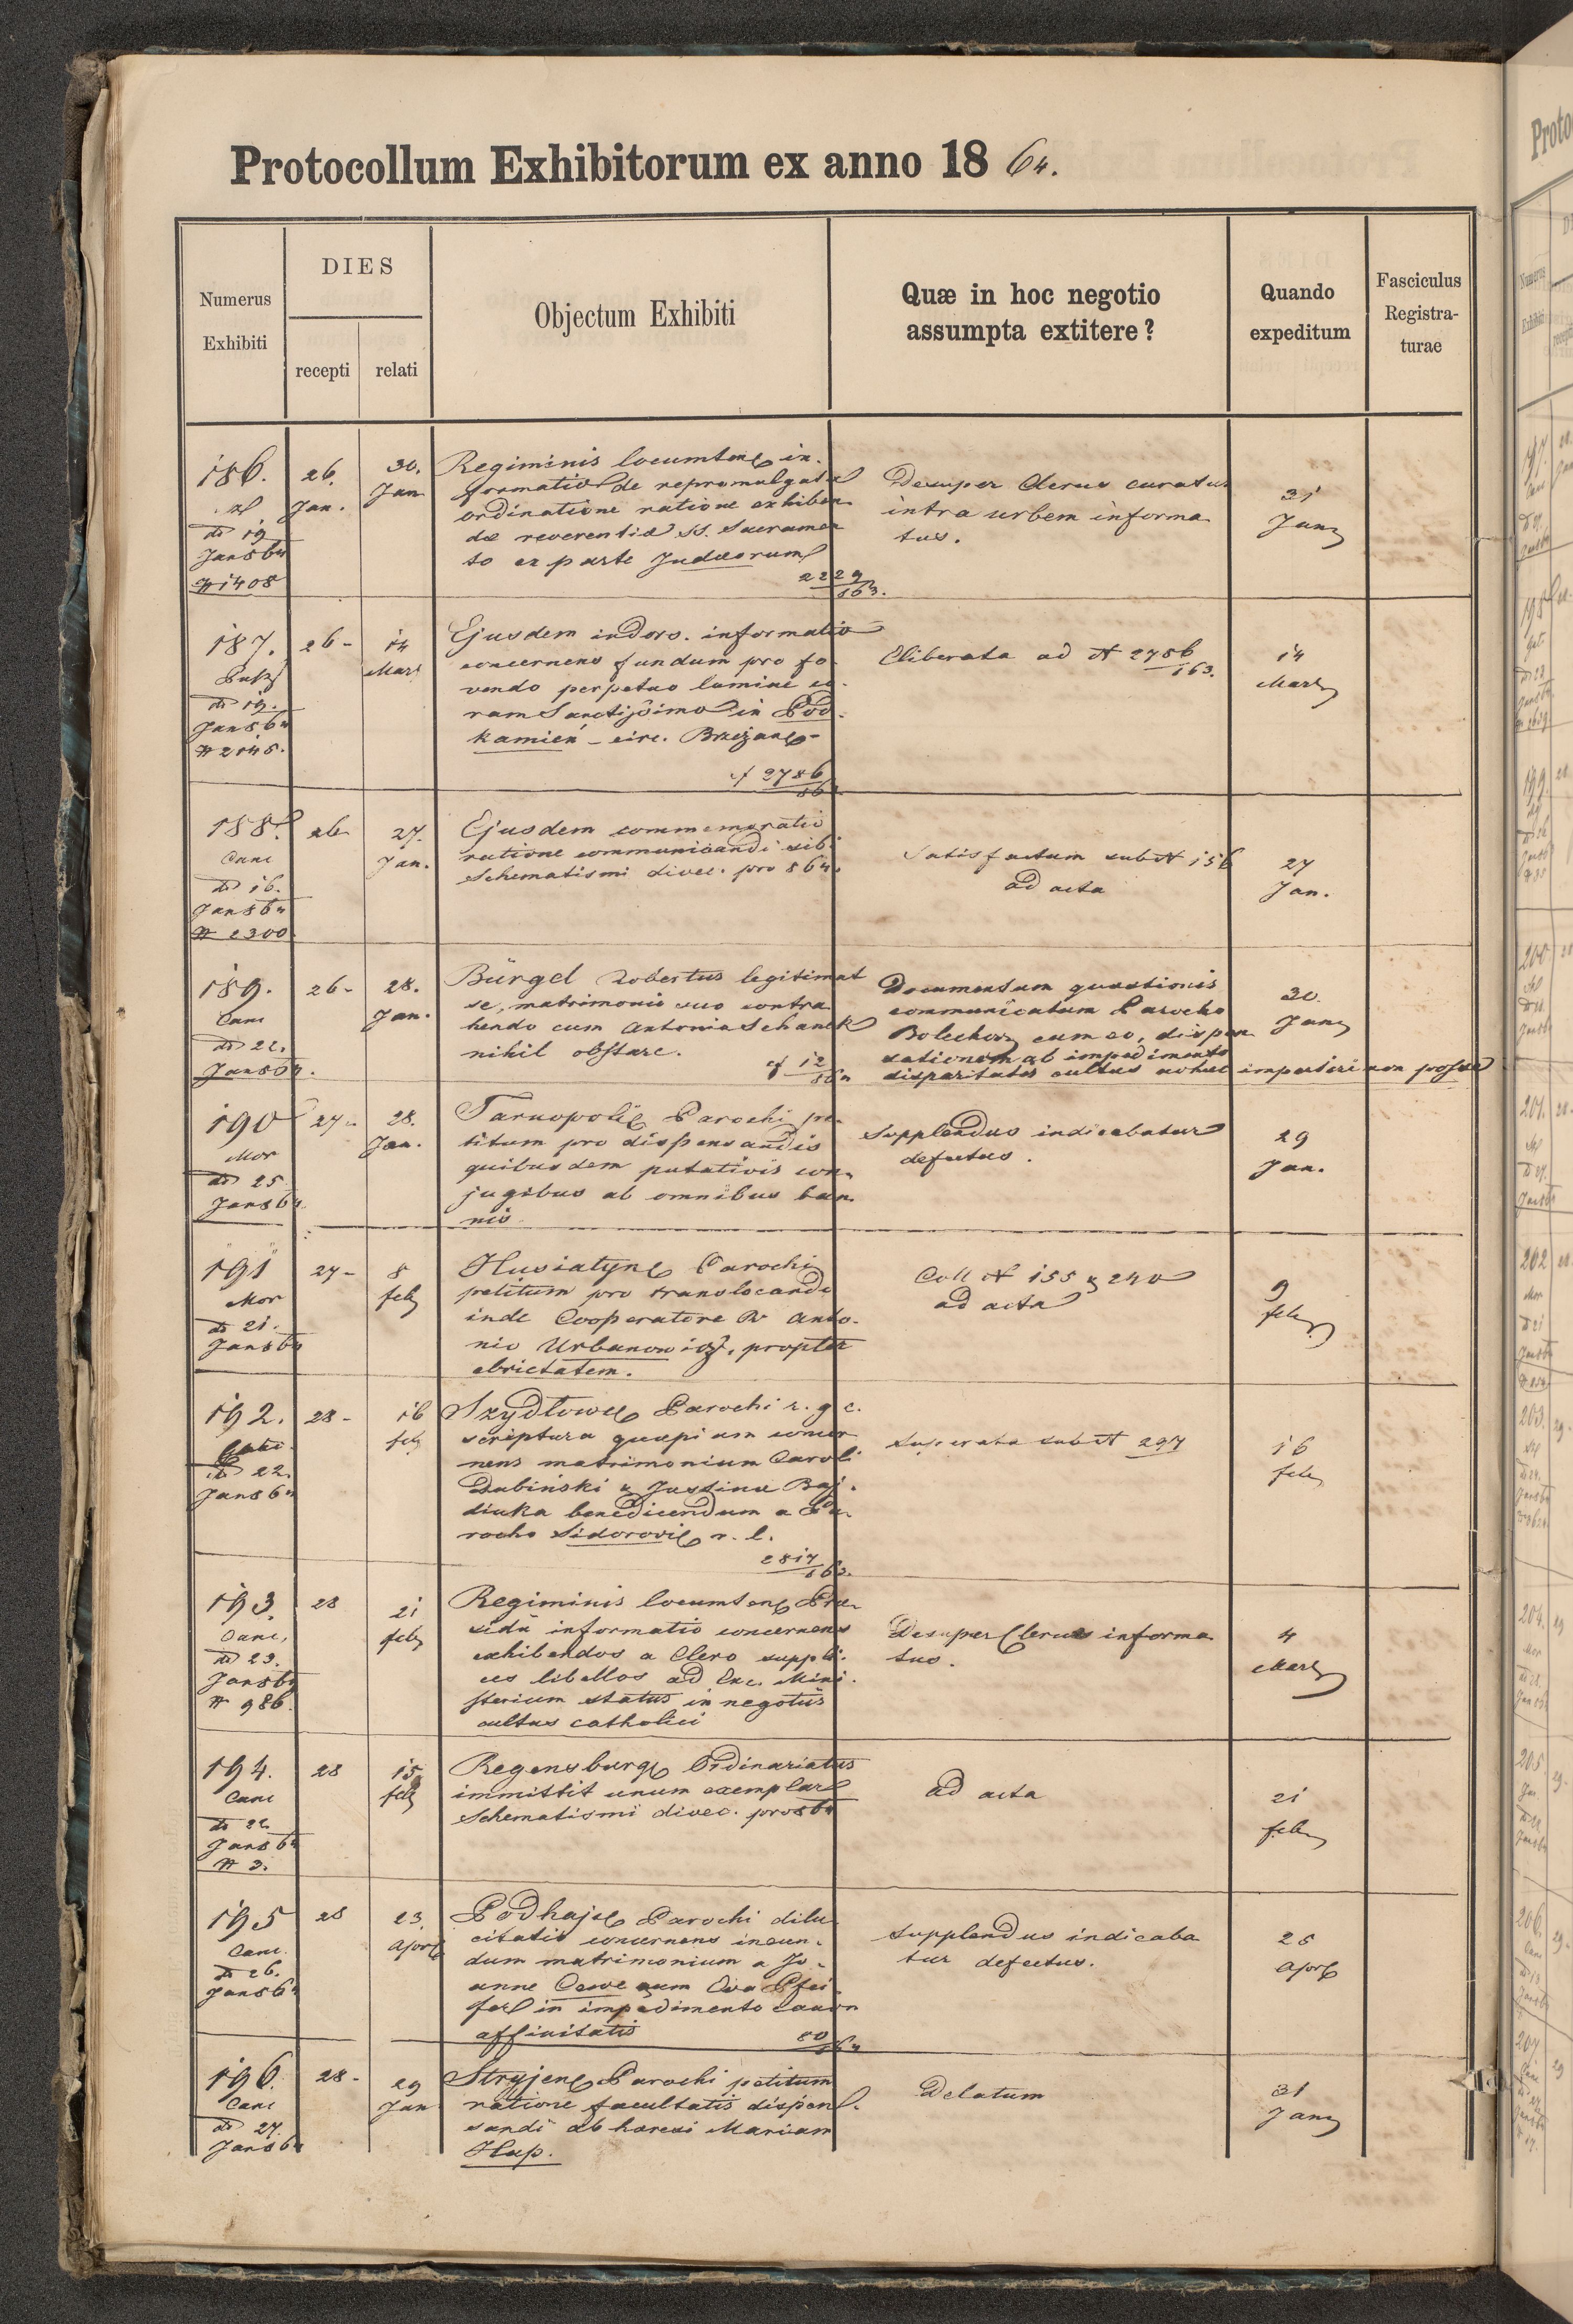 Protocollum Exhibitorum ex anno 18 64.
Numerus
Exhibiti
DIES
recepti
relati
Objectum Exhibiti
Quæ in hoc negotio
assumpta extitere?
Quando
expeditum
Fasciculus
Registra-
turae
186.
dd 19
Jan 864
N 1408
26.
Jan.
30.
Jan
Regiminis locumten in-
formatio de repromulgata
ordinatione ratione exhiben
dæ reverentiæ SS. Sacramen
to ex parte Judæorum
2229
863.
Desuper Clerus curatus
intra urbem informa
tus.
31
Jan
187.
dd 19.
Jan 864
N 2145.
26-
14
Mart
Ejusdem indors. informatio
concernens fundum pro fo-
vendo perpetuo lumine co-
ram Sanctissimo in Pod-
kamień - circ. Brzezan
cf 2786
Eliberata ad N 2786
863.
14
Mart
188.
Canc
dd 16.
Jan 864
N 2300
26
27.
Jan.
Ejusdem commemoratio
ratione communicandi sibi
Schematismi diœc. pro 864.
Satisfactum sub N 156
ad acta
27
Jan.
189.
Canc
dd 22.
Jan 864.
26-
28.
Jan.
Bürgel Robertus legitimat
se, matrimonio suo contra
hendo cum Antonia Schanek
nihil obstare.
cf 12
864
Documentum quæstionis
communicatum Parocho
Bolechov cum eo, dispen
sationem ab impedimento
disparitatis cultus adhuc impertiri non posse
30.
Jan
190
Mor
dd 25
Jan 864.
27-
28.
Jan.
Tarnopoli Parochi pe-
titum pro dispensandis
quibusdam putativis con-
jugibus ab omnibus ban
nis.
Supplendus indicabatur
defectus.
29
Jan.
191
Mor
dd 21.
Jan 864
27-
8
feb
Husiatyn Parochi
petitum pro translocando
inde Cooperatore R. Anto-
nio Urbanowicz, propter
ebrietatem.
Coll N 155 & 240
ad acta
9
feb
192.
dd 22.
Jan 864
28-
16
feb
Szydłow Parochi r. g. c.
scriptura quæpiam concer
nens matrimonium Caroli
Dubiński & Justinæ Baj-
diuka benedicendum a Pa-
rocho Sidorovi r. l.
2817
863.
Superata sub N 297
16
feb
193.
Canc,
dd 23.
Jan 864
N 986.
28
21
feb
Regiminis locumten Præ-
sidii informatio concernens
exhibendos a Clero suppli-
ces libellos ad Exc. Mini-
sterium status in negotiis
cultus catholici
Desuper Clerus informa
tus.
4
Mart
194.
Canc
dd 22
Jan 864
N 3.
28
15
feb
Regensburg Ordinariatus
immittit unum exemplar
Schematismi diœc. pro 864
ad acta
21
feb
195
Canc.
dd 26.
Jan 864
28
23.
Apr
Podhajc Parochi diluc
citatio concernens ineun-
dum matrimonium a Jo-
anne Cewe cum Eva Pfei-
fer in impedimento canon
affinitatis
80
864
Supplendus indicaba
tur defectus.
25
Apr
196.
Canc
dd 27.
Jan 864
28-
29
Jan
Stryjen Parochi petitum
ratione facultatis dispen-
sandi ab hæresi Mariam
Hap.
Delatum
31
Jan